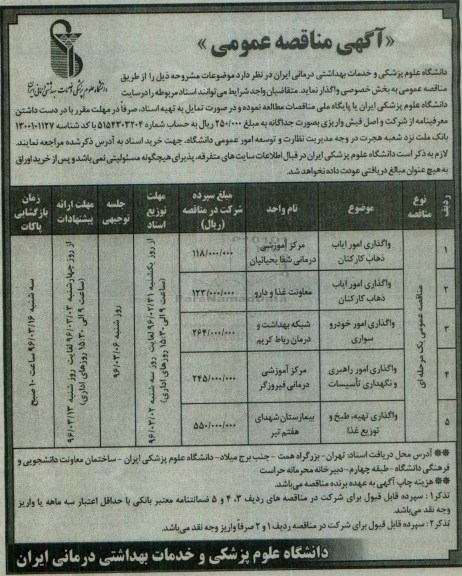 «آگهی مناقصه عمومی»
دانشگاه علوم پزشکی و خدمات بهداشتی درمانی ایران
دانشگاه علوم پزشکی و خدمات بهداشتی درمانی ایران در نظر دارد موضوعات مشروحه ذیل را از طریق
مناقصه عمومی به بخش خصوصی واگذار نماید. متقاضیان واجد شرایط می توانند اسناد مربوطه را در سایت
دانشگاه علوم پزشکی ایران یا پایگاه ملی مناقصات مطالعه نموده و در صورت تمایل به تهیه اسناد، صرفاً در مهلت مقرر با در دست داشتن
معرفینامه از شرکت و اصل فیش واریزی بصورت جداگانه به مبلغ ۲۵۰/۰۰۰ ریال به حساب شماره ۵۱۵۴۳۰۳۲۰۴ با کد شناسه ۱۳۰۰۱۰۱۱۲۷
بانک ملت نزد شعبه هجرت در وجه مدیریت نظارت و توسعه امور عمومی دانشگاه، جهت خرید اسناد به آدرس ذکر شده مراجعه نمایند.
لازم به ذکر است دانشگاه علوم پزشکی ایران در قبال اطلاعات سایت های متفرقه، پذیرای هیچگونه مسئولیتی نمی باشد و پس از خرید اوراق
به هیچ عنوان مبالغ دریافتی عودت داده نخواهد شد.
ردیف نوع مناقصه موضوع نام واحد مبلغ سپرده شرکت در مناقصه (ریال) مهلت توزیع اسناد جلسه توجیهی مهلت ارائه پیشنهادات زمان بازگشایی پاکات
مناقصه عمومی یک مرحله ای
۱ واگذاری امور ایاب ذهاب کارکنان مرکز آموزشی درمانی شفا یحیائیان ۱۱۸/۰۰۰/۰۰۰
۲ واگذاری امور ایاب ذهاب کارکنان معاونت غذا و دارو ۱۲۳/۰۰۰/۰۰۰
۳ واگذاری امور خودرو سواری شبکه بهداشت و درمان رباط کریم ۲۶۴/۰۰۰/۰۰۰
۴ واگذاری امور راهبری و نگهداری تأسیسات مرکز آموزشی درمانی فیروزگر ۲۴۵/۰۰۰/۰۰۰
۵ واگذاری تهیه، طبخ و توزیع غذا بیمارستان شهدای هفتم تیر ۵۵۰/۰۰۰/۰۰۰
از روز یکشنبه ۹۶/۰۲/۳۱ لغایت روز سه شنبه ۹۶/۰۳/۰۲
(ساعت ۹ الی ۱۵:۳۰ روزهای اداری)
روز شنبه ۹۶/۰۳/۰۶
از روز چهارشنبه ۹۶/۰۳/۰۳ لغایت روز شنبه ۹۶/۰۳/۱۳
(ساعت ۹ الی ۱۵:۳۰ روزهای اداری)
سه شنبه ۹۶/۰۳/۱۶ ساعت ۱۰ صبح
ParsNamadData
** آدرس محل دریافت اسناد: تهران - بزرگراه همت - جنب برج میلاد - دانشگاه علوم پزشکی ایران - ساختمان معاونت دانشجویی و
فرهنگی دانشگاه - طبقه چهارم - دبیرخانه محرمانه حراست
** هزینه چاپ آگهی به عهده برنده مناقصه می باشد.
تذکر۱: سپرده قابل قبول برای شرکت در مناقصه های ردیف ۳، ۴ و ۵ ضمانتنامه معتبر بانکی با حداقل اعتبار سه ماهه یا واریز
وجه نقد می باشد.
تذکر۲: سپرده قابل قبول برای شرکت در مناقصه ردیف ۱ و ۲ صرفاً واریز وجه نقد می باشد.
دانشگاه علوم پزشکی و خدمات بهداشتی درمانی ایران